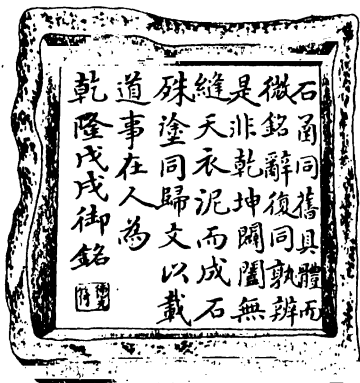 石函同舊具體而
微銘辭復同孰辨
是非乾坤闢闔無
縫天衣泥而成石
殊塗同歸文以載
道事在人為
乾隆戊戌御銘